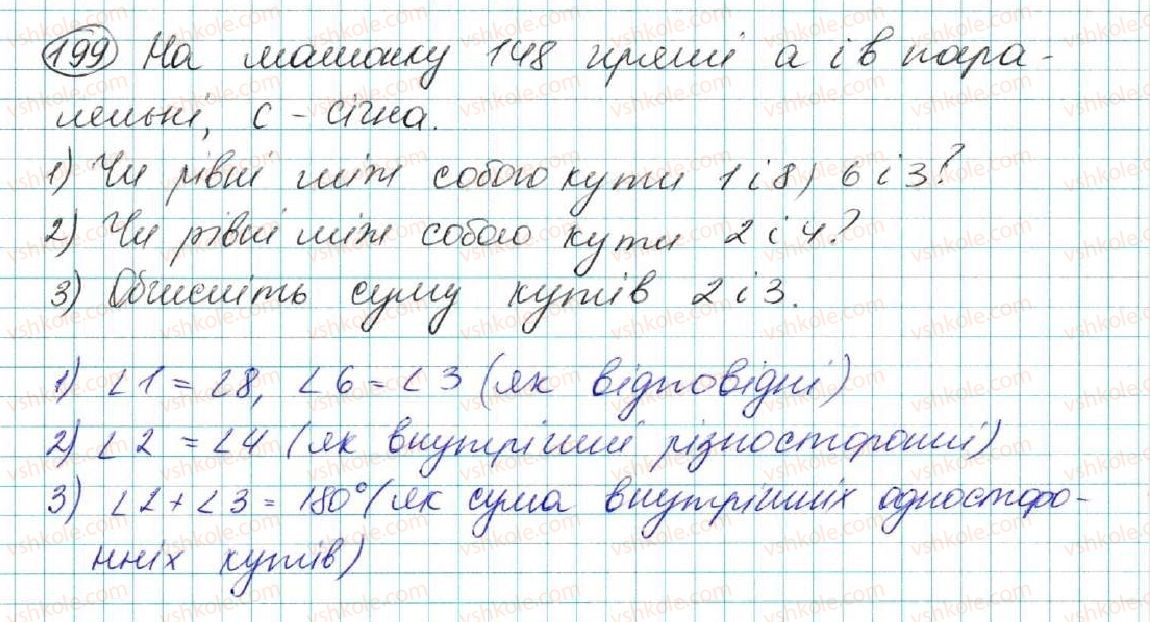 199 На малюнку 148 прямі а і в пара-
лельні, с - січна.
1) Чи рівні між собою кути 1 і 8, 6 і 3?
2) Чи рівні між собою кути 2 і 4?
3) Обчисліть суму кутів 2 і 3.
1) ∠1 = ∠8, ∠6 = ∠3 (як відповідні)
2) ∠2 = ∠4 (як внутрішні різносторонні)
3) ∠2 + ∠3 = 180° (як сума внутрішніх односторо-
нніх кутів)